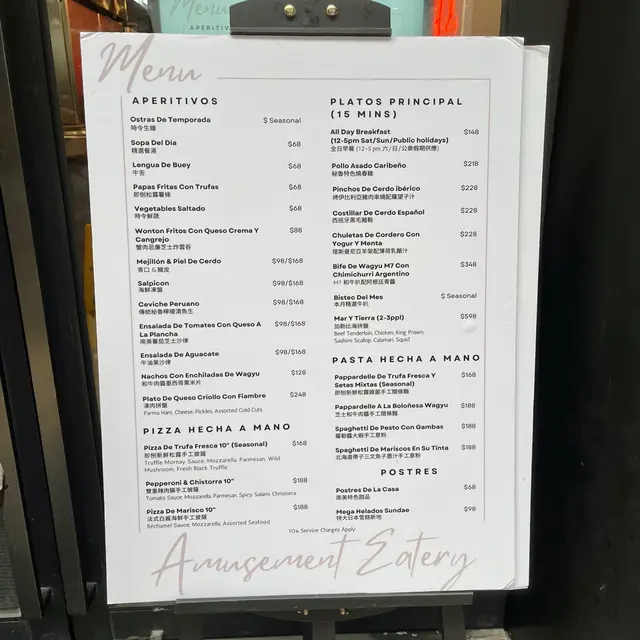 Menu
APERITIV
Menu
APERITIVOS
Ostras De Temporada $ Seasonal
時令生蠔
Sopa Del Dia $68
精選餐湯
Lengua De Buey $68
牛舌
Papas Fritas Con Trufas $68
即刨松露薯條
Vegetables Saltado $68
時令鮮蔬
Wonton Fritos Con Queso Crema Y $88
Cangrejo
蟹肉忌廉芝士炸雲吞
Mejillón & Piel De Cerdo $98/$168
青口 & 豬皮
Salpicon $98/$168
海鮮凍盤
Ceviche Peruano $98/$168
傳統秘魯檸檬漬魚生
Ensalada De Tomates Con Queso A $98/$168
La Plancha
南美蕃茄芝士沙律
Ensalada De Aguacate $98/$168
牛油果沙律
Nachos Con Enchiladas De Wagyu $128
和牛肉醬墨西哥粟米片
Plato De Queso Criollo Con Fiambre $248
凍肉拼盤
Parma Ham, Cheese, Pickles, Assorted Cold Cuts
PIZZA HECHA A MANO
Pizza De Trufa Fresca 10" (Seasonal) $168
即刨新鮮松露手工披薩
Truffle Mornay Sauce, Mozzarella, Parmesan, Wild
Mushroom, Fresh Black Truffle
Pepperoni & Chistorra 10" $188
雙重辣肉腸手工披薩
Tomato Sauce, Mozzarella, Parmesan, Spicy Salami, Chistorra
Pizza De Marisco 10" $188
法式白醬海鮮手工披薩
Béchamel Sauce, Mozzarella, Assorted Seafood
PLATOS PRINCIPAL
(15 MINS)
All Day Breakfast $148
(12-5pm Sat/Sun/Public holidays)
全日早餐 (12-5 pm 六/日/公眾假期供應)
Pollo Asado Caribeño $218
秘魯特色燒春雞
Pinchos De Cerdo ibérico $228
烤伊比利亞豬肉串燒配羅望子汁
Costillar De Cerdo Español $228
西班牙黑毛豬鞍
Chuletas De Cordero Con $228
Yogur Y Menta
塔斯曼尼亞羊架配薄荷乳酪汁
Bife De Wagyu M7 Con $348
Chimichurri Argentino
M7 和牛扒配阿根廷青醬
Bistec Del Mes $ Seasonal
本月精選牛扒
Mar Y Tierra (2-3ppl) $598
加勒比海拼盤
Beef Tenderloin, Chicken, King Prawn,
Sashimi Scallop, Calamari, Squid
PASTA HECHA A MANO
Pappardelle De Trufa Fresca Y $168
Setas Mixtas (Seasonal)
即刨新鮮松露雜菌手工闊條麵
Pappardelle A La Boloñesa Wagyu $188
芝士和牛肉醬手工闊條麵
Spaghetti De Pesto Con Gambas $188
羅勒醬大蝦手工意粉
Spaghetti De Mariscos En Su Tinta $188
北海道帶子三文魚子墨汁手工意粉
POSTRES
Postres De La Casa $68
南美特色甜品
Mega Helados Sundae $98
特大日本雪糕新地
10% Service Charges Apply
Amusement Eatery